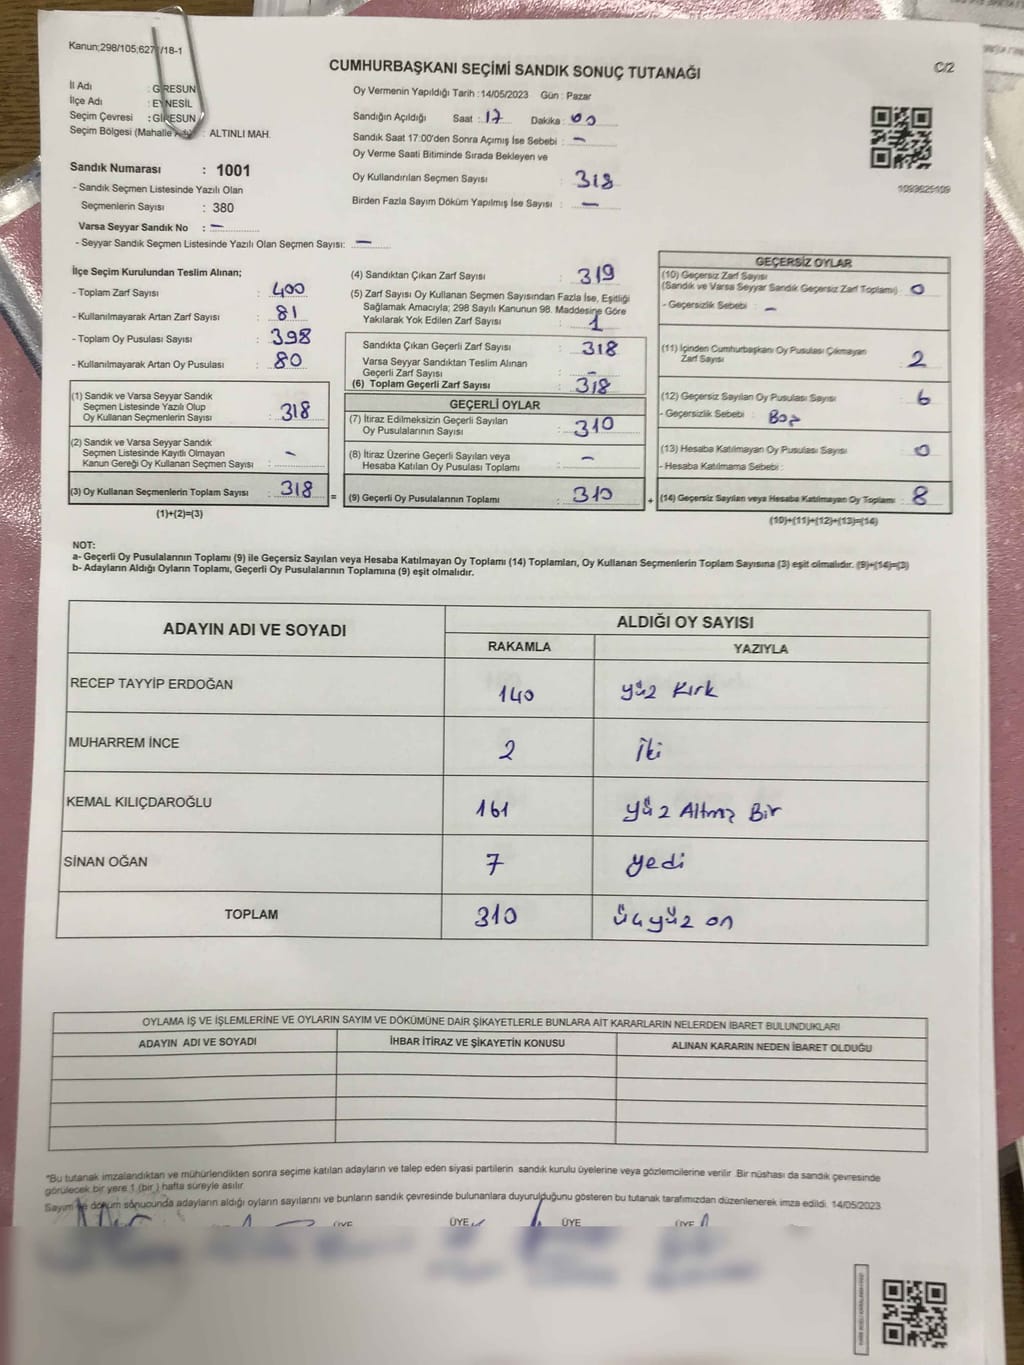 Kanun;298/105;627 /18-1
CUMHURBAŞKANI SEÇİMİ SANDIK SONUÇ TUTANAĞI
C/2
İl Adı : GİRESUN
İlçe Adı : EYNESİL
Seçim Çevresi : GİRESUN
Seçim Bölgesi (Mahalle : ALTINLI MAH.
Sandık Numarası : 1001
- Sandık Seçmen Listesinde Yazılı Olan
Seçmenlerin Sayısı : 380
Varsa Seyyar Sandık No : –
- Seyyar Sandık Seçmen Listesinde Yazılı Olan Seçmen Sayısı: –
Oy Vermenin Yapıldığı Tarih :14/05/2023 Gün : Pazar
Sandığın Açıldığı Saat : 17 Dakika : 00
Sandık Saat 17:00'den Sonra Açımış İse Sebebi : –
Oy Verme Saati Bitiminde Sırada Bekleyen ve
Oy Kullandırılan Seçmen Sayısı : 318
Birden Fazla Sayım Döküm Yapılmış İse Sayısı : –
1099625109
İlçe Seçim Kurulundan Teslim Alınan;
- Toplam Zarf Sayısı : 400
- Kullanılmayarak Artan Zarf Sayısı : 81
- Toplam Oy Pusulası Sayısı : 398
- Kullanılmayarak Artan Oy Pusulası : 80
(1) Sandık ve Varsa Seyyar Sandık
Seçmen Listesinde Yazılı Olup
Oy Kullanan Seçmenlerin Sayısı : 318
(2) Sandık ve Varsa Seyyar Sandık
Seçmen Listesinde Kayıtlı Olmayan
Kanun Gereği Oy Kullanan Seçmen Sayısı : –
(3) Oy Kullanan Seçmenlerin Toplam Sayısı : 318
(1)+(2)=(3)
(4) Sandıktan Çıkan Zarf Sayısı : 319
(5) Zarf Sayısı Oy Kullanan Seçmen Sayısından Fazla İse, Eşitliği
Sağlamak Amacıyla; 298 Sayılı Kanunun 98. Maddesine Göre
Yakılarak Yok Edilen Zarf Sayısı : 1
Sandıkta Çıkan Geçerli Zarf Sayısı : 318
Varsa Seyyar Sandıktan Teslim Alınan
Geçerli Zarf Sayısı : –
(6) Toplam Geçerli Zarf Sayısı : 318
GEÇERLİ OYLAR
(7) İtiraz Edilmeksizin Geçerli Sayılan
Oy Pusulalarının Sayısı : 310
(8) İtiraz Üzerine Geçerli Sayılan veya
Hesaba Katılan Oy Pusulası Toplamı : –
= (9) Geçerli Oy Pusulalarının Toplamı : 310
GEÇERSİZ OYLAR
(10) Geçersiz Zarf Sayısı
(Sandık ve Varsa Seyyar Sandık Geçersiz Zarf Toplamı) : 0
- Geçersizlik Sebebi : –
(11) İçinden Cumhurbaşkanı Oy Pusulası Çıkmayan
Zarf Sayısı : 2
(12) Geçersiz Sayılan Oy Pusulası Sayısı : 6
- Geçersizlik Sebebi : Boş
(13) Hesaba Katılmayan Oy Pusulası Sayısı : 0
- Hesaba Katılmama Sebebi :
+ (14) Geçersiz Sayılan veya Hesaba Katılmayan Oy Toplamı : 8
(10)+(11)+(12)+(13)=(14)
NOT:
a- Geçerli Oy Pusulalarının Toplamı (9) ile Geçersiz Sayılan veya Hesaba Katılmayan Oy Toplamı (14) Toplamları, Oy Kullanan Seçmenlerin Toplam Sayısına (3) eşit olmalıdır. (9)+(14)=(3)
b- Adayların Aldığı Oyların Toplamı, Geçerli Oy Pusulalarının Toplamına (9) eşit olmalıdır.
ADAYIN ADI VE SOYADI
ALDIĞI OY SAYISI
RAKAMLA YAZIYLA
RECEP TAYYİP ERDOĞAN 140 yüz Kırk
MUHARREM İNCE 2 İki
KEMAL KILIÇDAROĞLU 161 yüz Altmış Bir
SİNAN OĞAN 7 yedi
TOPLAM 310 üçyüz on
OYLAMA İŞ VE İŞLEMLERİNE VE OYLARIN SAYIM VE DÖKÜMÜNE DAİR ŞİKAYETLERLE BUNLARA AİT KARARLARIN NELERDEN İBARET BULUNDUKLARI
ADAYIN ADI VE SOYADI İHBAR İTİRAZ VE ŞİKAYETİN KONUSU ALINAN KARARIN NEDEN İBARET OLDUĞU
*Bu tutanak imzalandıktan ve mühürlendikten sonra seçime katılan adayların ve talep eden siyasi partilerin sandık kurulu üyelerine veya gözlemcilerine verilir .Bir nüshası da sandık çevresinde
görülecek bir yere 1 (bir ) hafta süreyle asılır.
Sayım ve döküm sonucunda adayların aldığı oyların sayılarını ve bunların sandık çevresinde bulunanlara duyurulduğunu gösteren bu tutanak tarafımızdan düzenlenerek imza edildi. 14/05/2023
ÜYE ÜYE ÜYE ÜYE